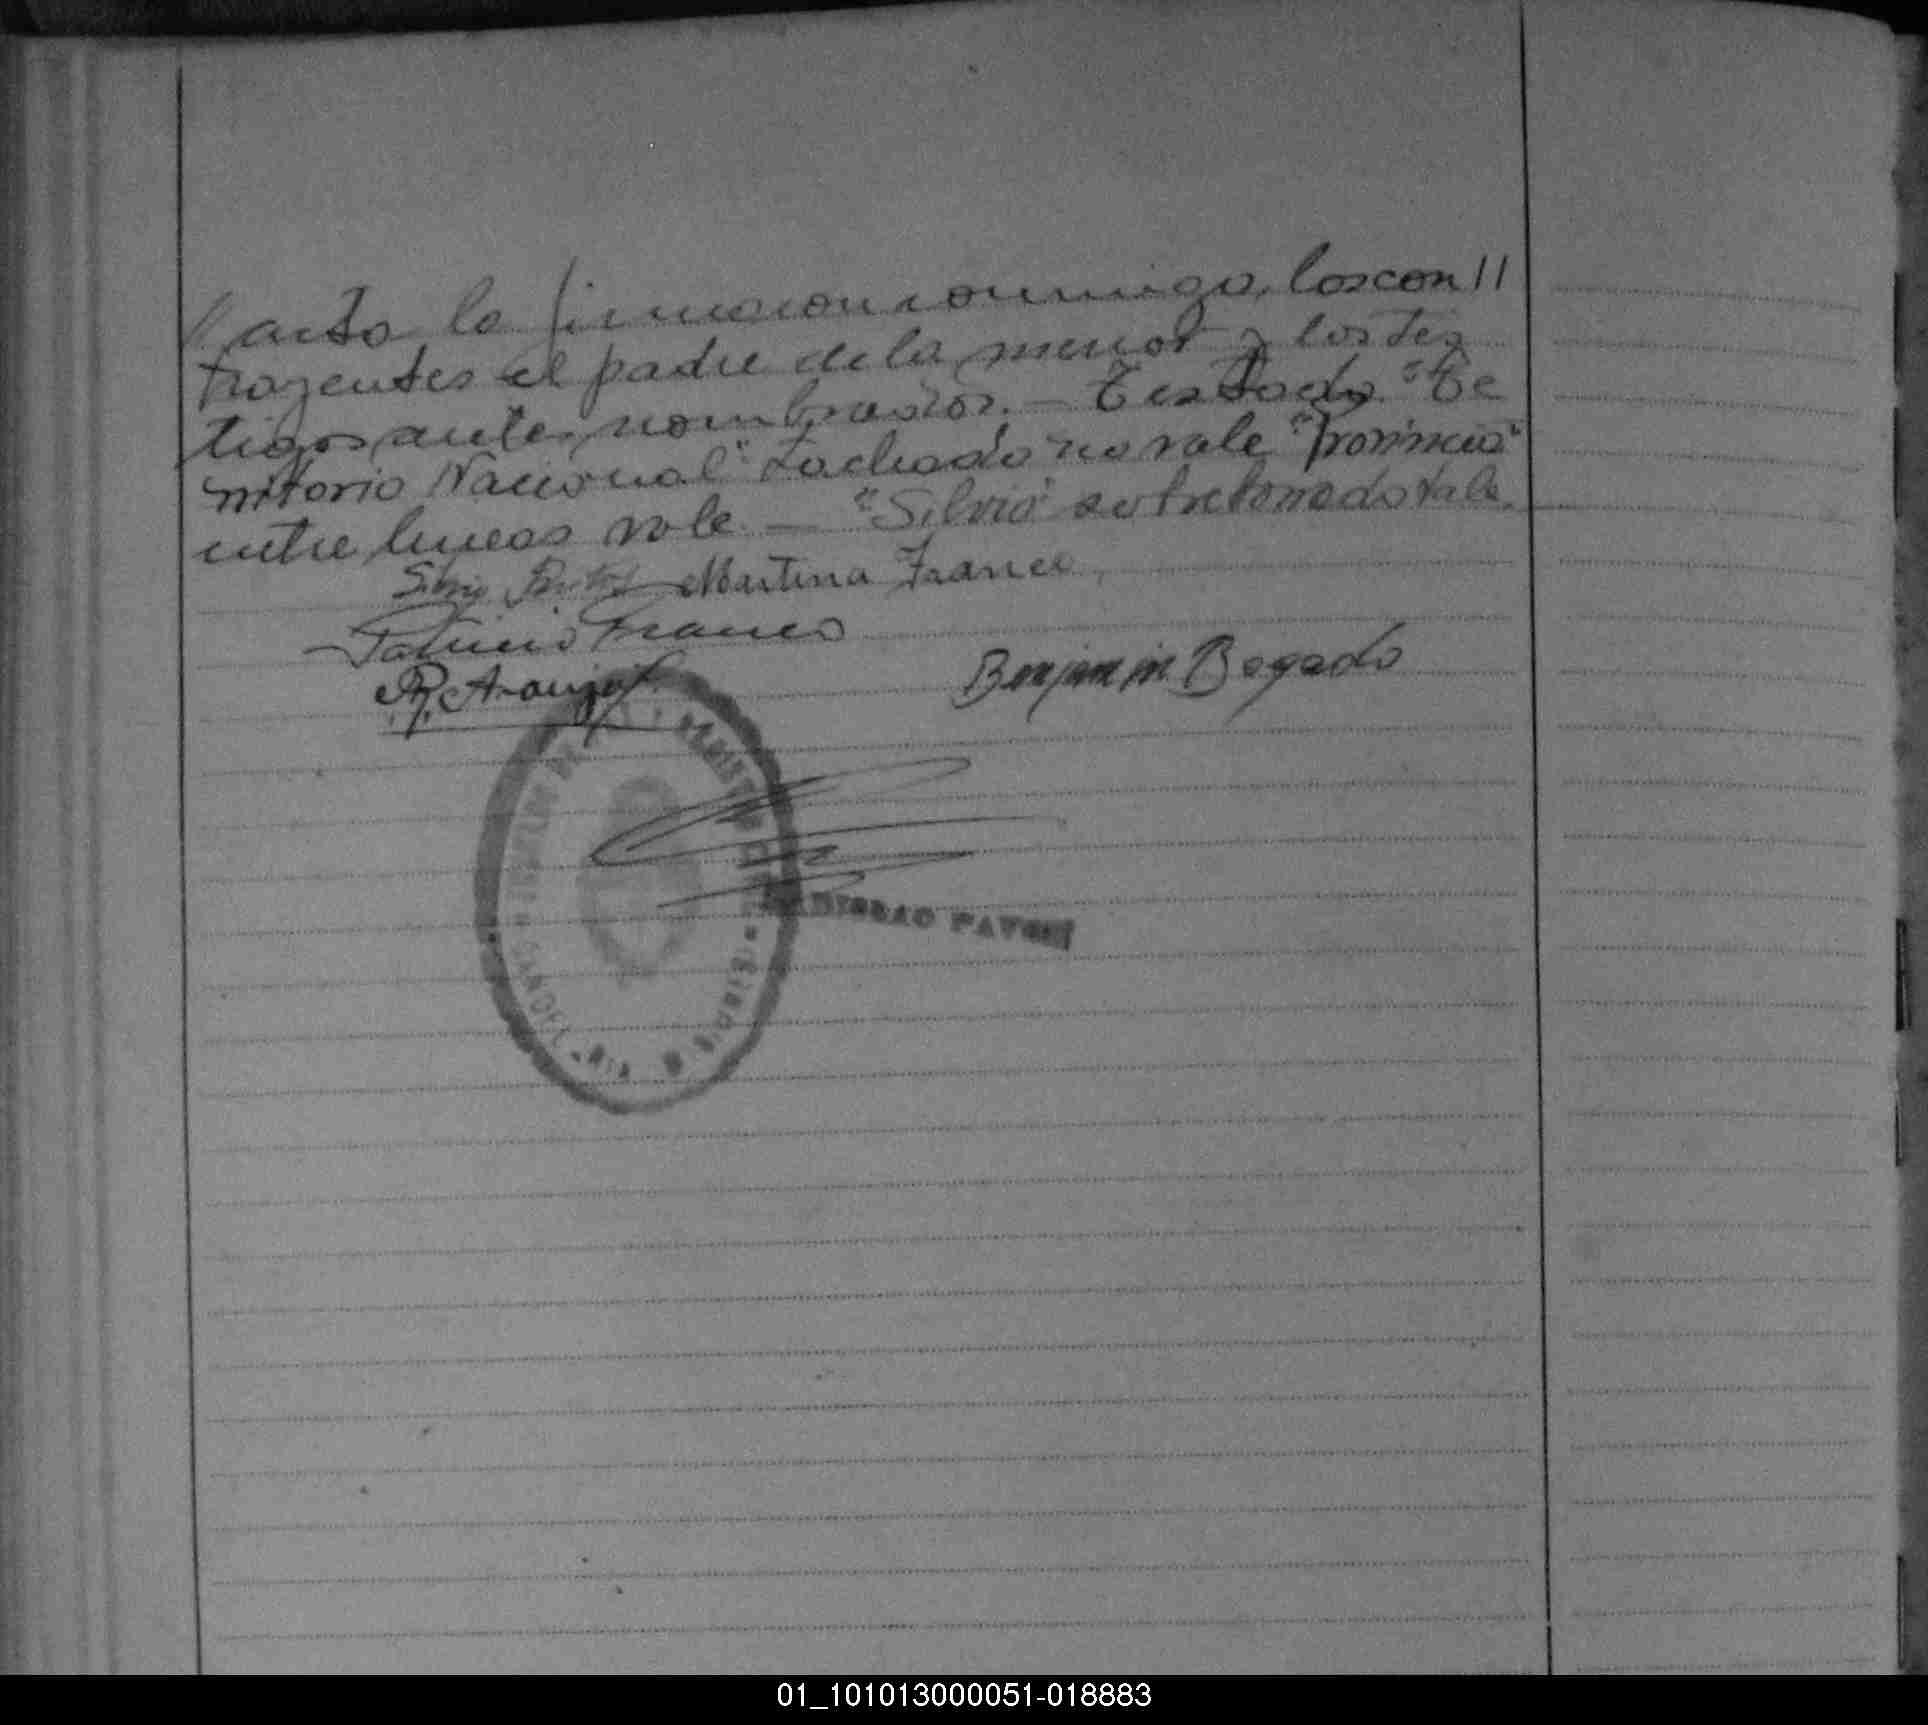 // acta la firmaron conmigo, los con //
trayentes el padre de la menor y los tes
tigos antes nombrados. — Testado "Te
rritorio Nacional" tachado no vale "Provincia"
entre lineas vale — "Silvio" sobreborrado vale.
Silvio Martina Franco
Patricio Franco
R. Araujo
Benjamin Bogado
REGISTRO
CANDELARIA
MISIONES
PAVON
01_101013000051-018883